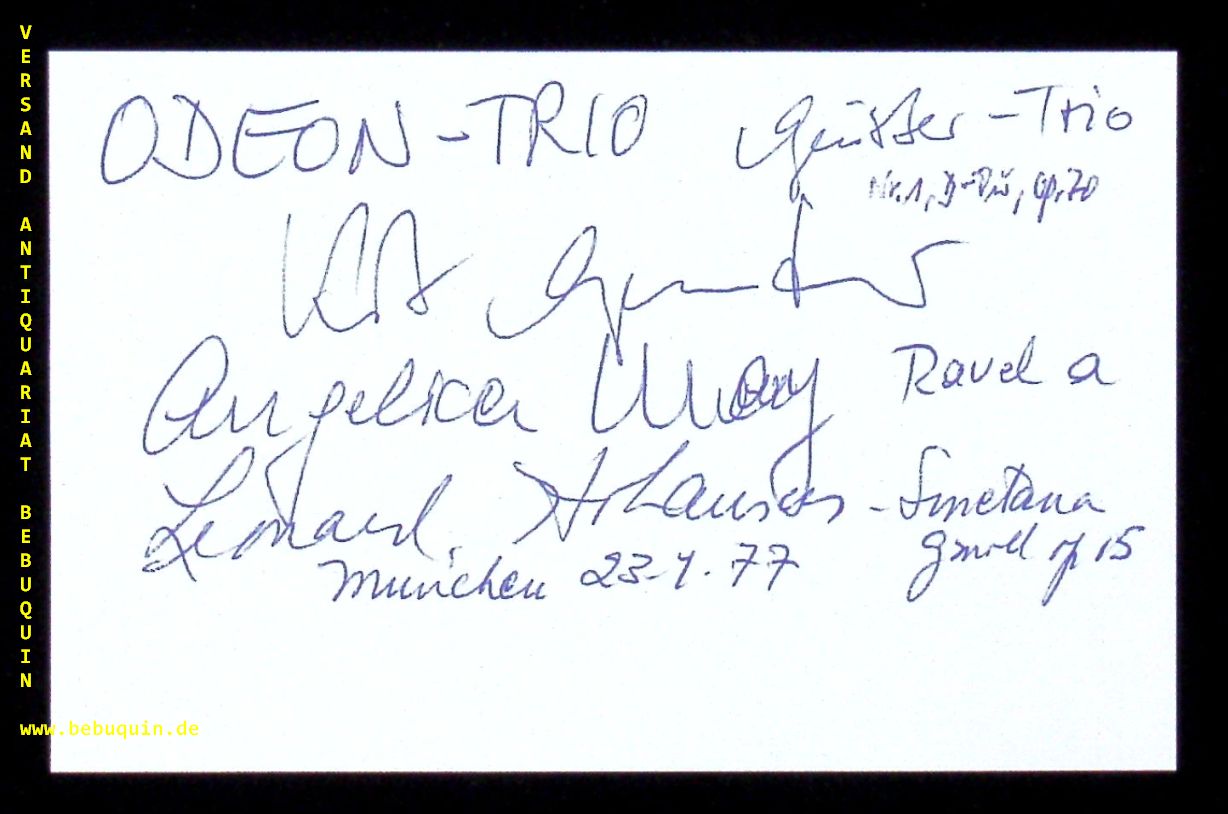 VERSAND ANTIQUARIAT BEBUQUIN
www.bebuquin.de
ODEON-TRIO Geister-Trio
Nr.1, D-Dur, op.70
Kurt Guntner
Angelica May Ravel a
Leonard Hokanson - Smetana
München 23-1.77 g moll op 15